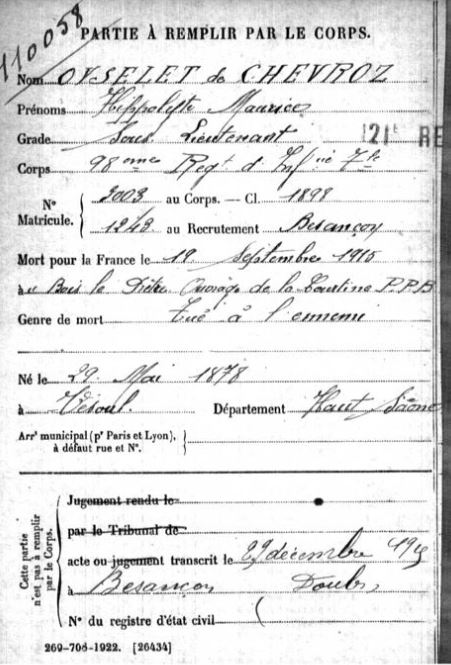 110058
PARTIE À REMPLIR PAR LE CORPS.
Nom OYSELET de CHEVROZ
Prénoms Hippolyte Maurice
Grade Sous Lieutenant
121e RE
Corps 98eme Regt d'Infrie Tle
N° Matricule. 2003 au Corps. — Cl. 1898
1249 au Recrutement Besançon
Mort pour la France le 19 Septembre 1915
au Bois le Prêtre Ouvrage de la P.P.B
Genre de mort Tué à l'ennemi
Né le 29 Mai 1878
à Vésoul. Département Haut Saône
Arrt municipal (pr Paris et Lyon), à défaut rue et N°.
Cette partie n'est pas à remplir par le Corps.
Jugement rendu le
par le Tribunal de
acte ou jugement transcrit le 29 décembre 1915
à Besançon Doubs
N° du registre d'état civil
269-708-1922. [26434]